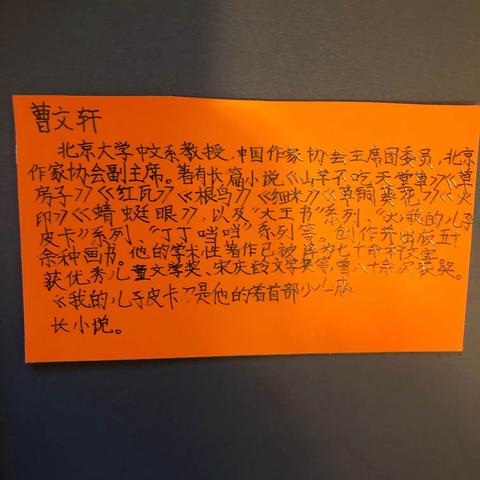 曹文轩
北京大学中文系教授,中国作家协会主席团委员,北京
作家协会副主席。著有长篇小说《山羊不吃天堂草》《草
房子》《红瓦》《根鸟》《细米》《青铜葵花》《火
印》《蜻蜓眼》,以及"大王书"系列、"我的儿子
皮卡"系列、"丁丁当当"系列等。创作并出版五十
余种画书。他的学术性著作已被译为七十余种文字
获优秀儿童文学奖、宋庆龄文学奖等 十余次获奖。
《我的儿子皮卡》是他的 首部少
长小说。